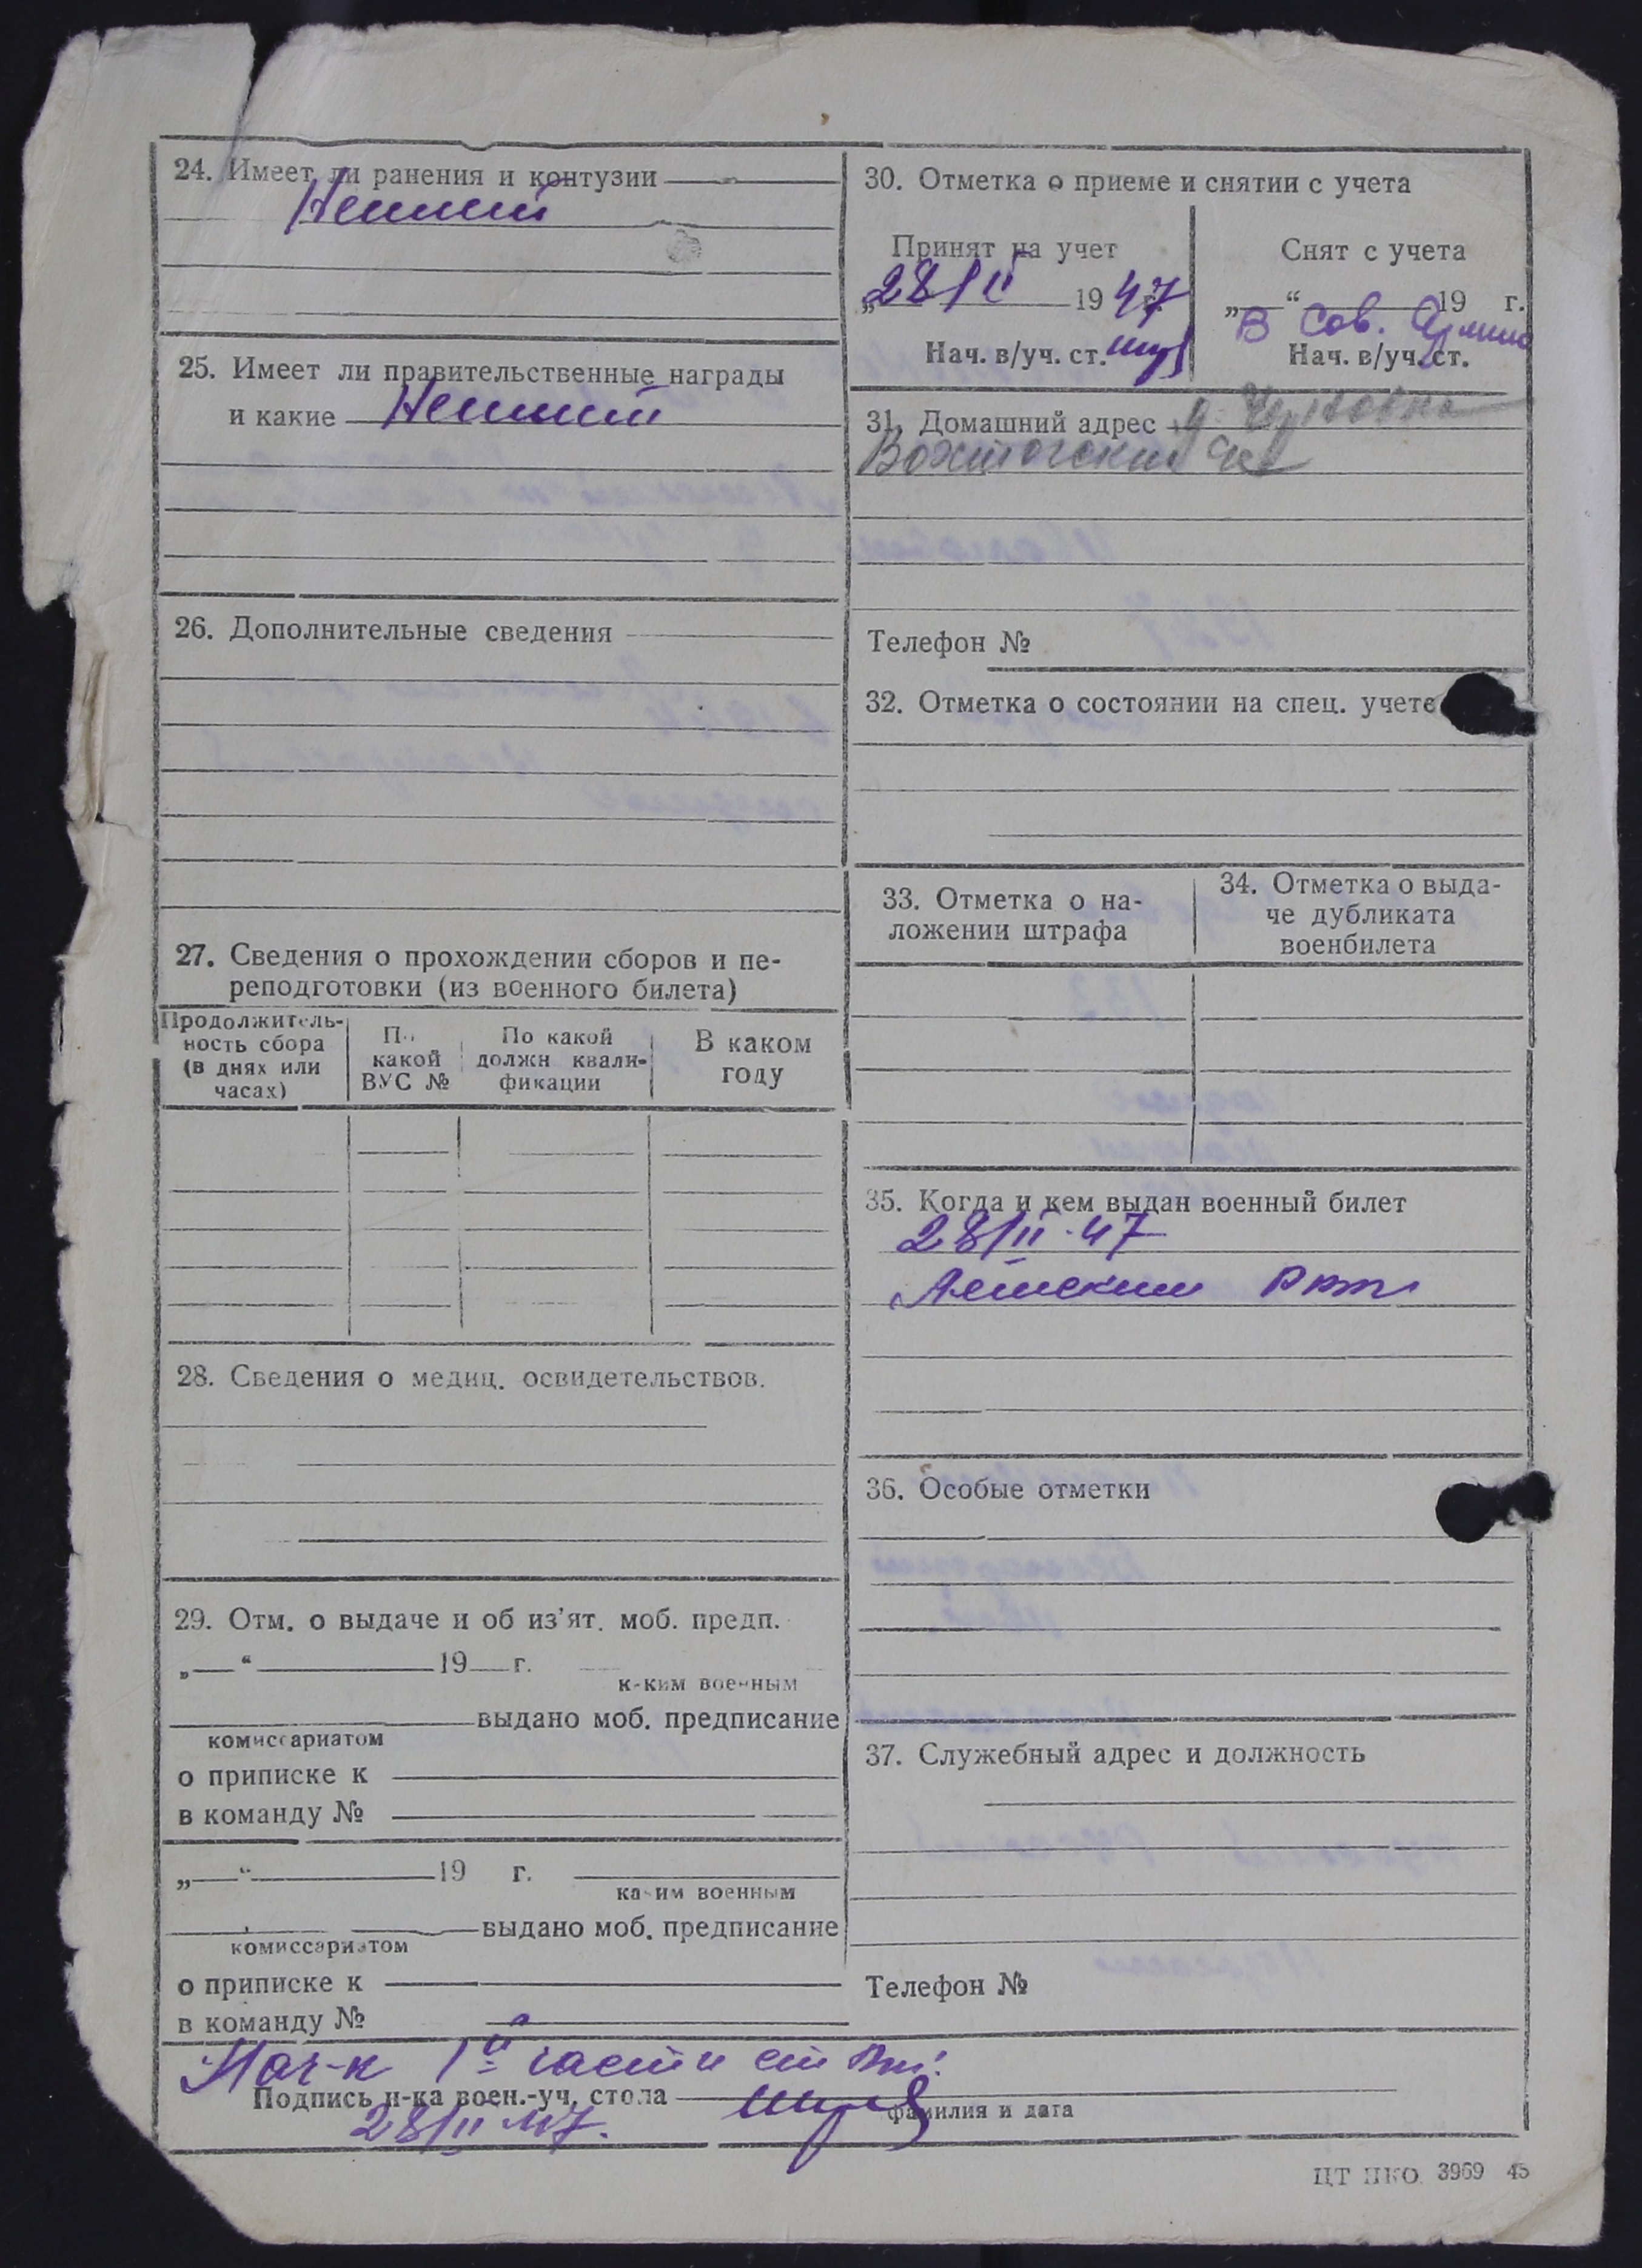 24. Имеет ли ранения и контузии
Не имеет
25. Имеет ли правительственные награды
и какие Не имеет
26. Дополнительные сведения
27. Сведения о прохождении сборов и пе-
реподготовки (из военного билета)
Продолжитель-
ность сбора
(в днях или
часах)
По
какой
ВУС №
По какой
должн квали-
фикации
В каком
году
28. Сведения о медиц. освидетельствов.
29. Отм. о выдаче и об из'ят. моб. предп.
„ “ 19 г.
каким военным
выдано моб. предписание
комиссариатом
о приписке к
в команду №
„ “ 19 г.
каким военным
выдано моб. предписание
комиссариатом
о приписке к
в команду №
30. Отметка о приеме и снятии с учета
Принят на учет
„28/II 1947 г.
Нач. в/уч. ст.
Снят с учета
„ “ 19 г.
В Сов. Армию
Нач. в/уч. ст.
31. Домашний адрес д.
Вохтогский с/с
Телефон №
32. Отметка о состоянии на спец. учете
33. Отметка о на-
ложении штрафа
34. Отметка о выда-
че дубликата
военбилета
35. Когда и кем выдан военный билет
28/II-47
РВК
36. Особые отметки
37. Служебный адрес и должность
Телефон №
Нач-к 1й части
Подпись н-ка воен.-уч. стола
фамилия и дата
28/II 47.
ЦТ НКО. 3969 45